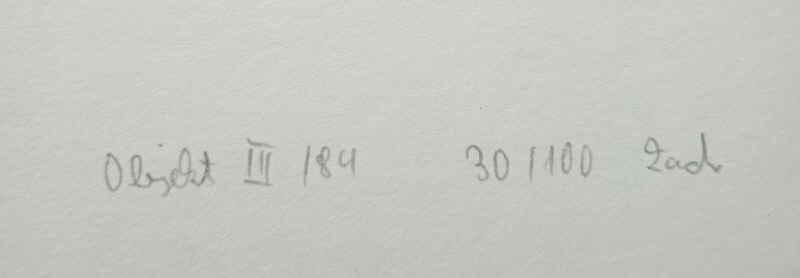 Objekt III /84 30/100 Zach